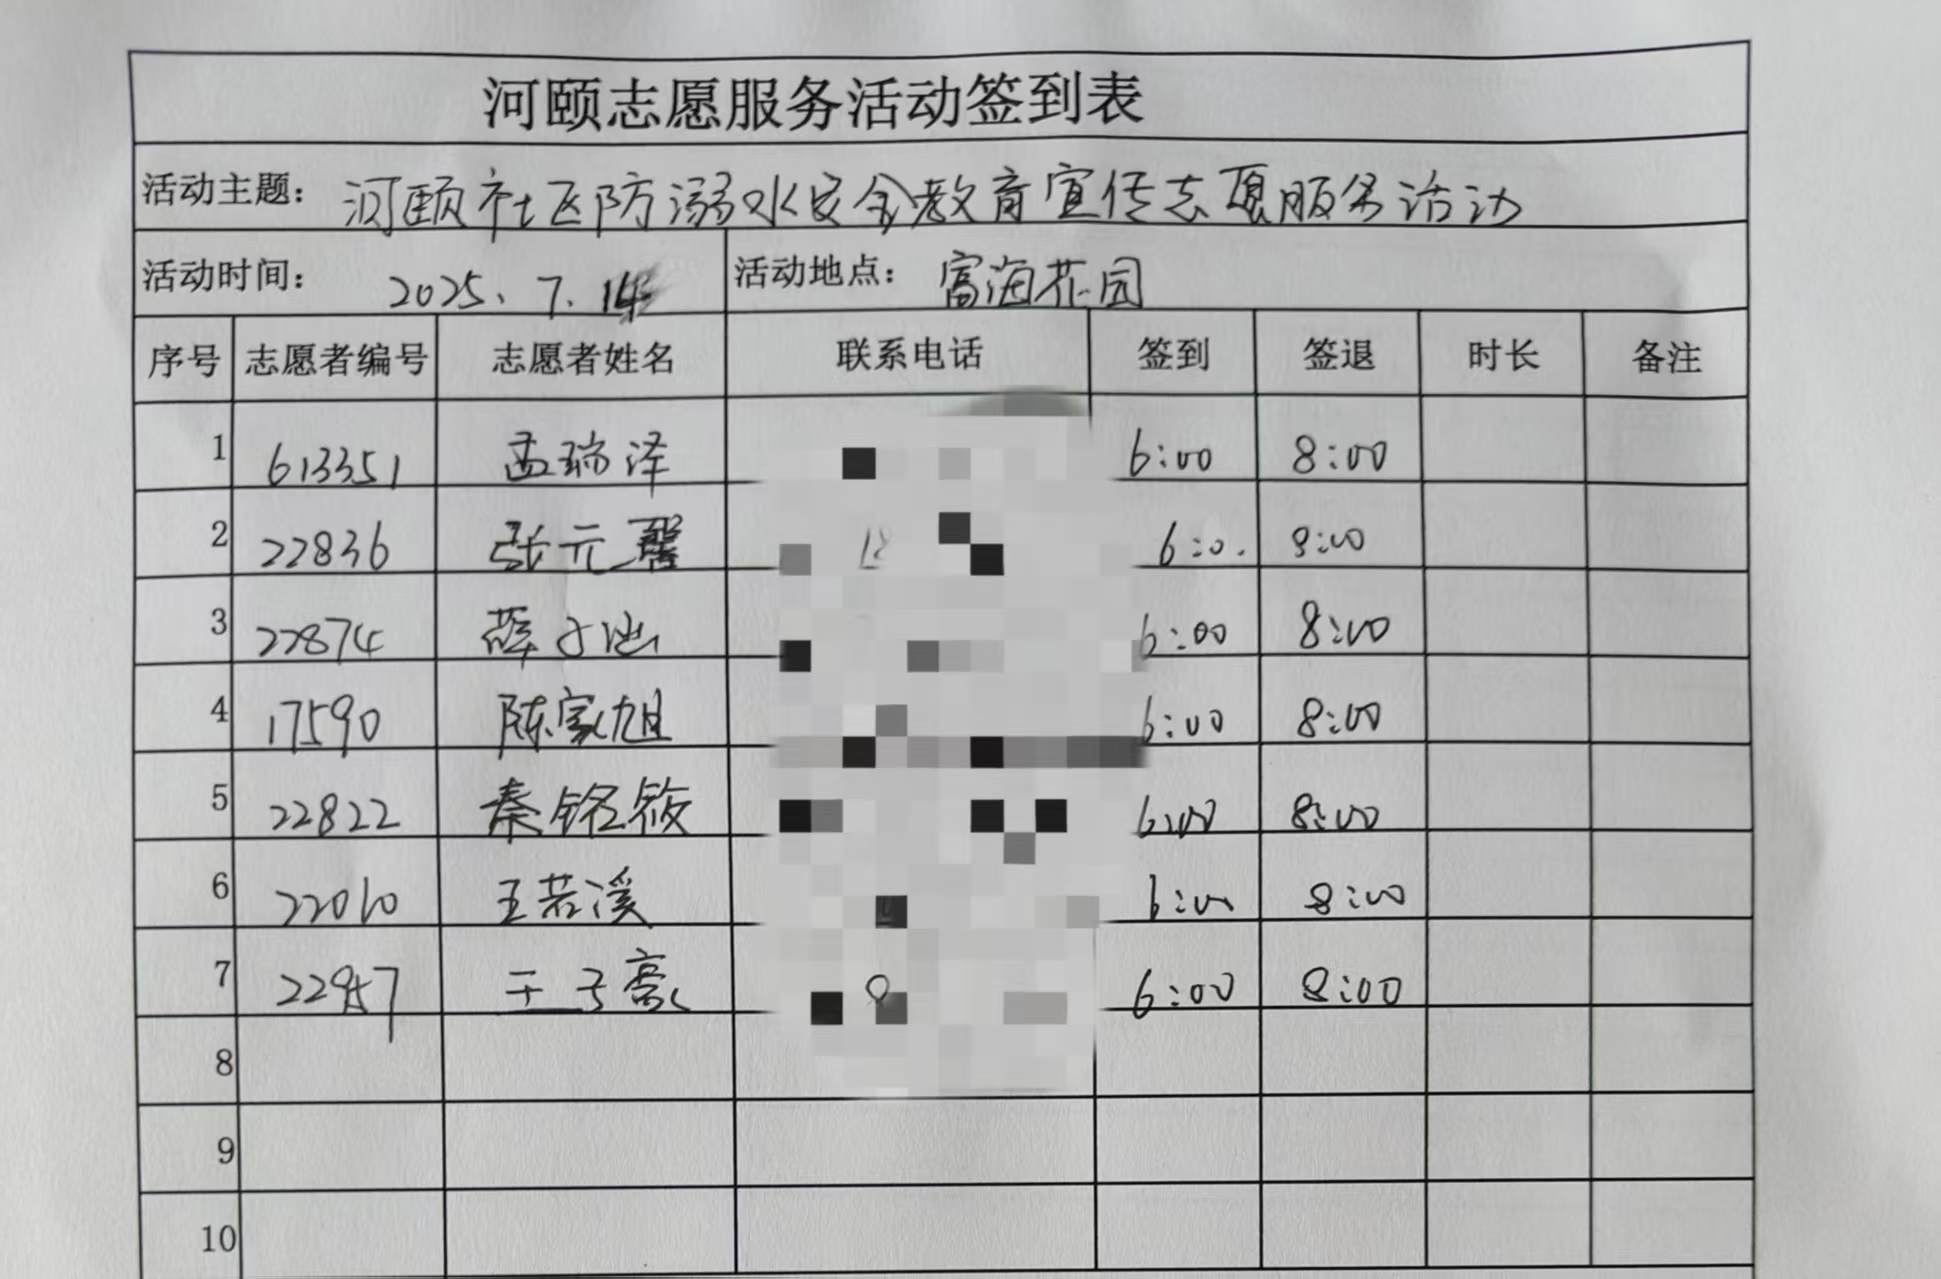 河颐志愿服务活动签到表
活动主题： 河颐社区防溺水安全教育宣传志愿服务活动
活动时间： 2025.7.14 活动地点： 富海花园
序号 志愿者编号 志愿者姓名 联系电话 签到 签退 时长 备注
1 613351 孟瑞泽 6:00 8:00
2 22836 张元馨 18 6:0. 8:00
3 22874 薛子 6:00 8:00
4 17590 陈家旭 6:00 8:00
5 22822 秦铭筱 6:00 8:00
6 22010 王若溪 6:00 8:00
7 22957 王子豪 6:00 8:00
8
9
10